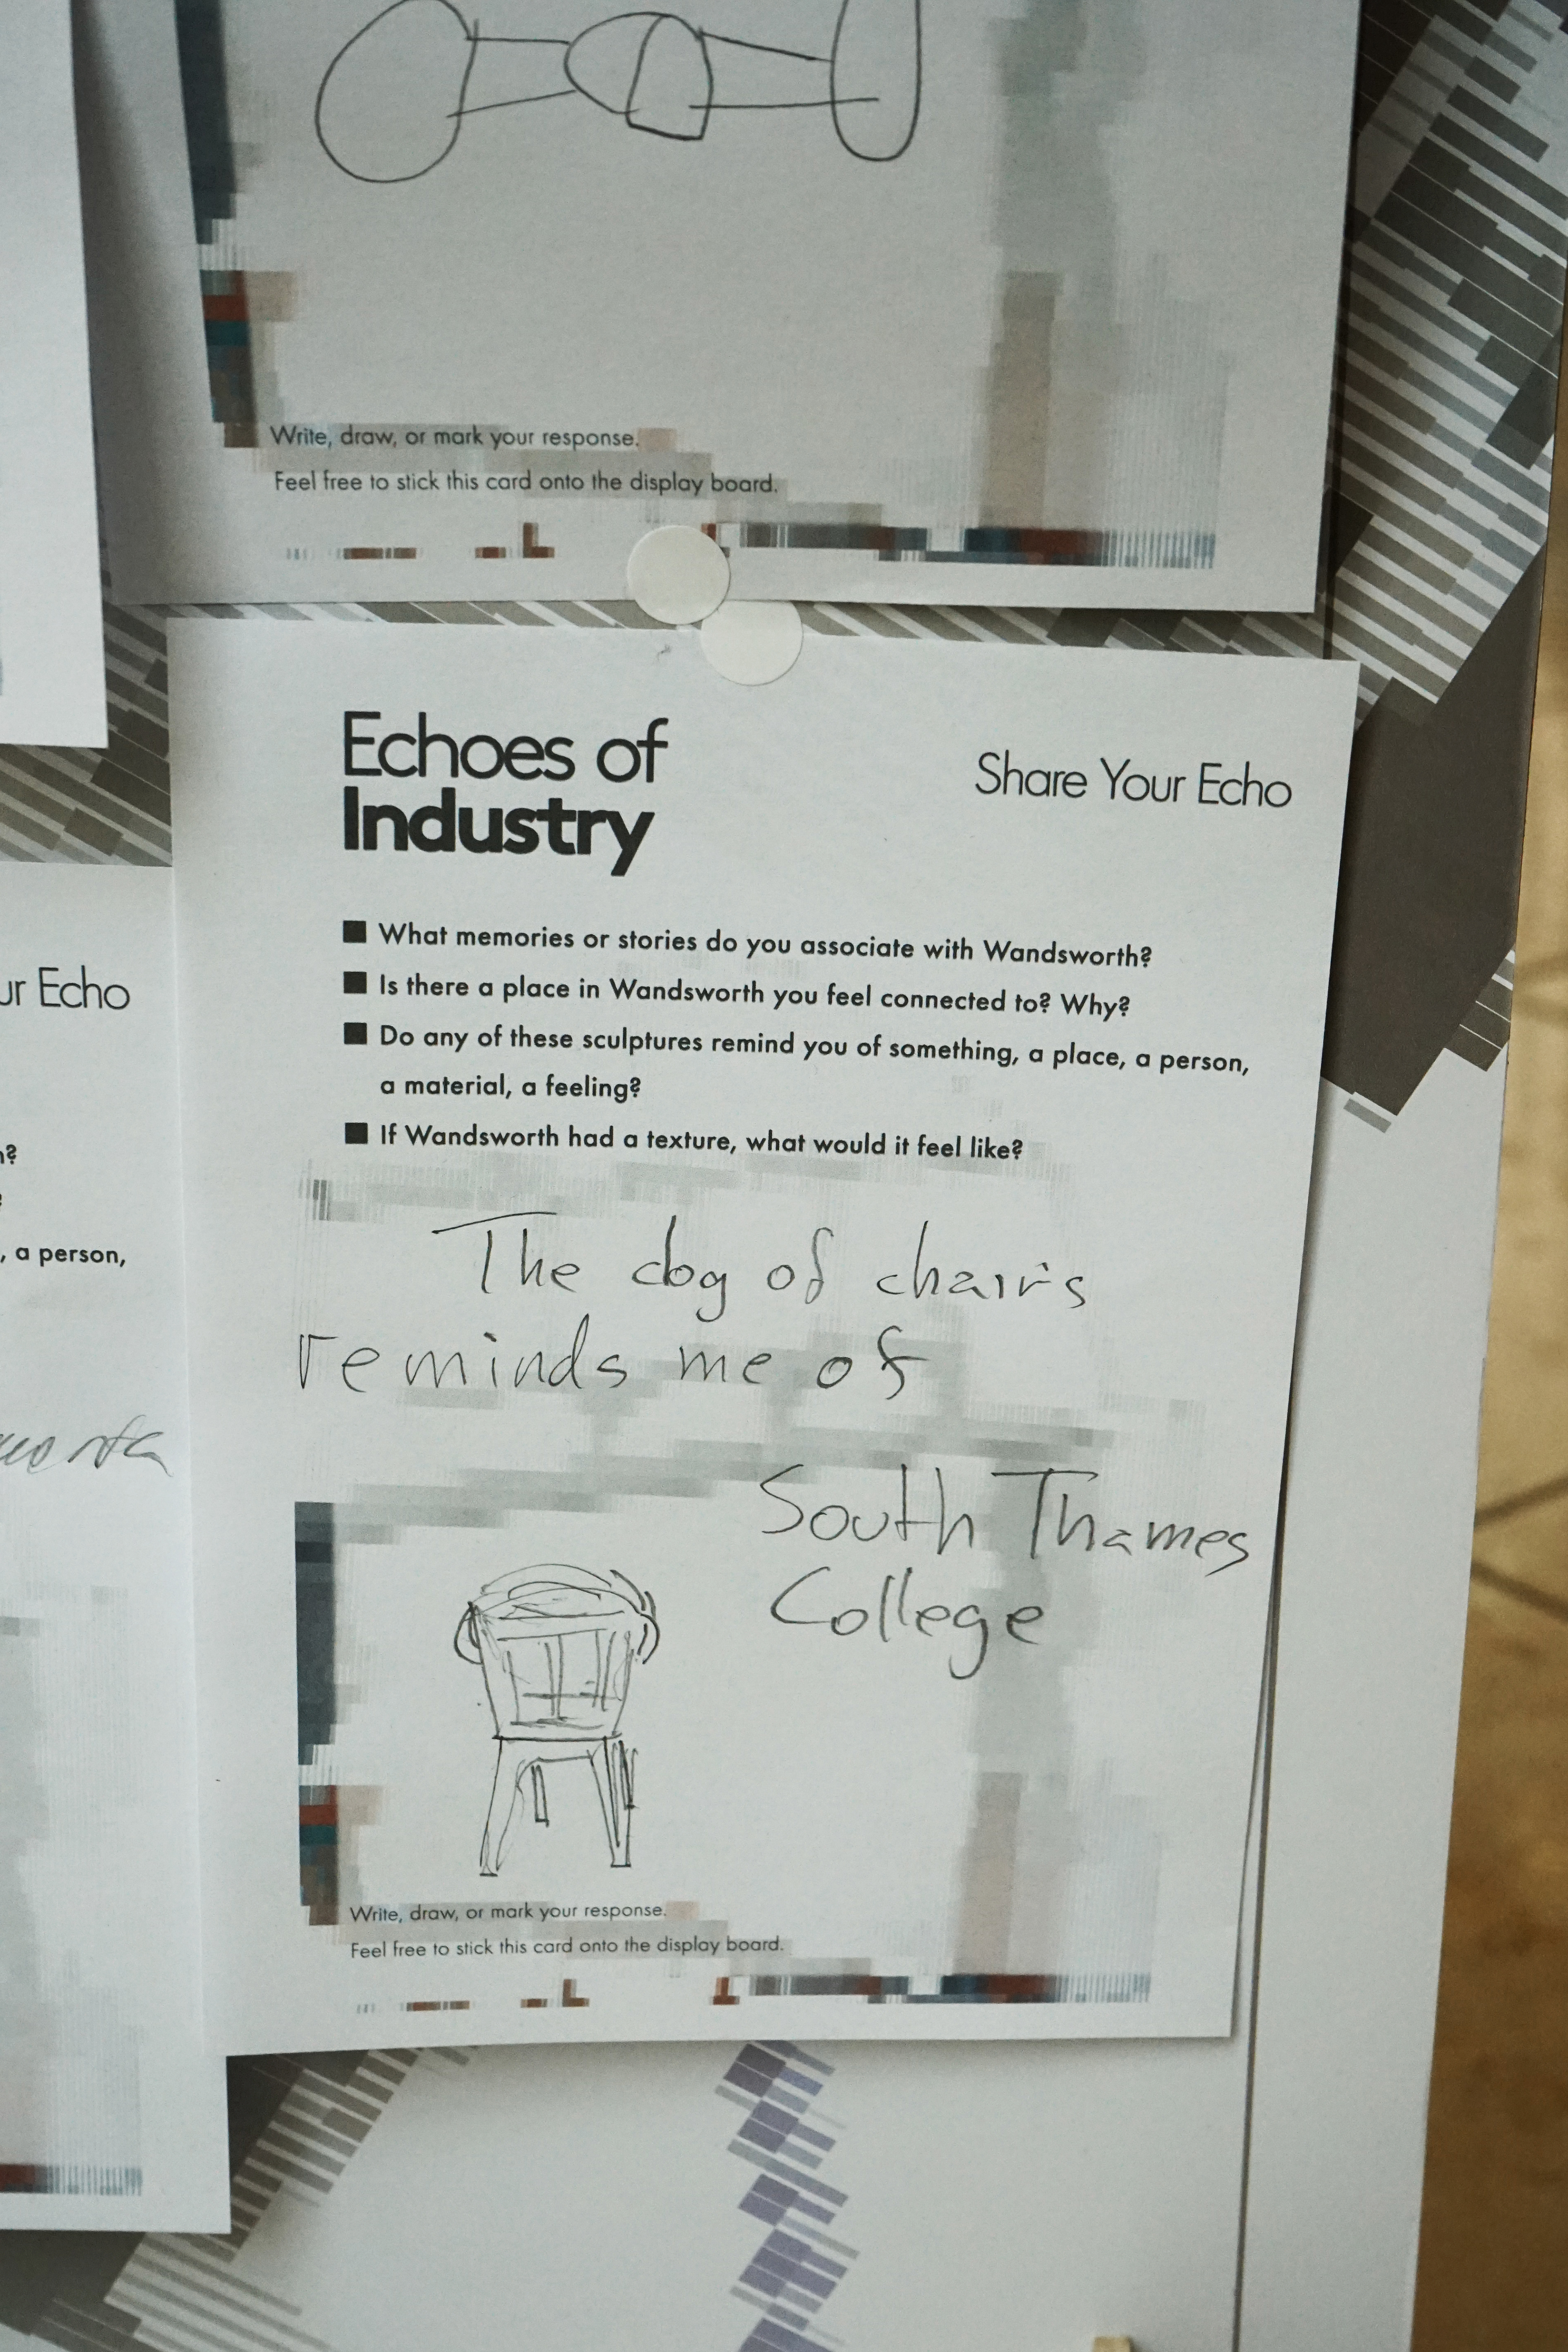 Write, draw, or mark your response.
Feel free to stick this card onto the display board.
Echoes of
Industry
Share Your Echo
What memories or stories do you associate with Wandsworth?
Is there a place in Wandsworth you feel connected to? Why?
Do any of these sculptures remind you of something, a place, a person,
a material, a feeling?
If Wandsworth had a texture, what would it feel like?
The dog of chairs
reminds me of
South Thames
College
Write, draw, or mark your response.
Feel free to stick this card onto the display board.
Echo
, a person,